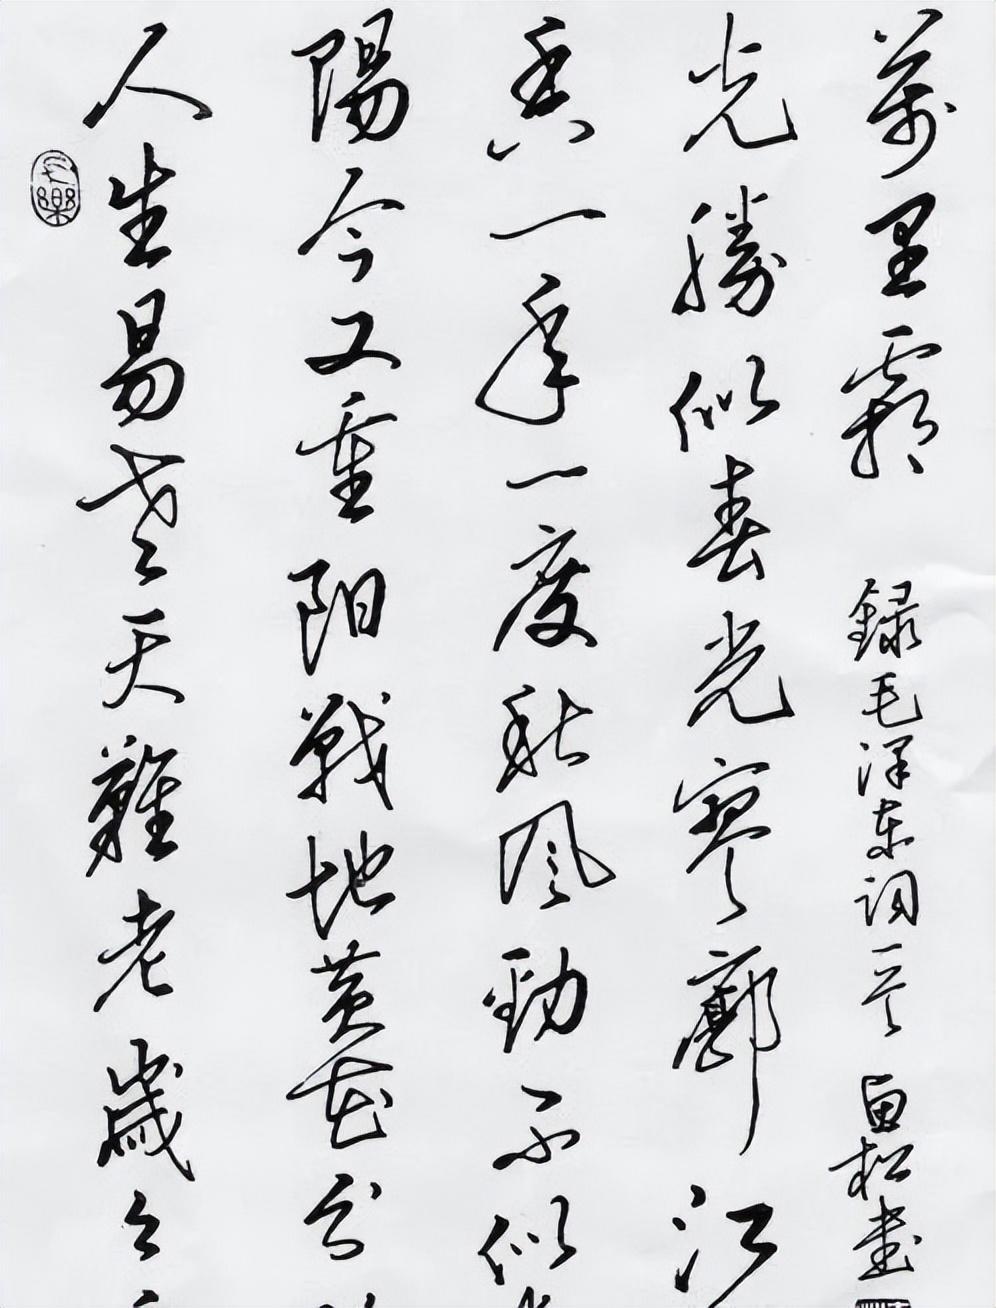 人生易老天難老歲々
陽今又重阳戰地黄花分
香一年一度秋风勁不似
光勝似春光寥廓江
萬里霜
録毛泽东词一首 松書